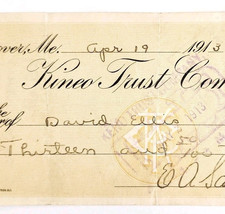 over, Me. Apr 19 1913
Kineo Trust Com
of David Ellis
Thirteen and 50/100
E A Sa